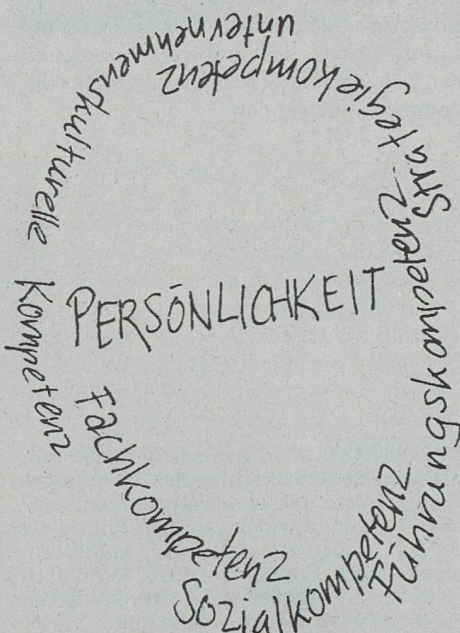 PERSÖNLICHKEIT
Fachkompetenz
Sozialkompetenz
Führungskompetenz
Strategiekompetenz
unternehmenskulturelle Kompetenz